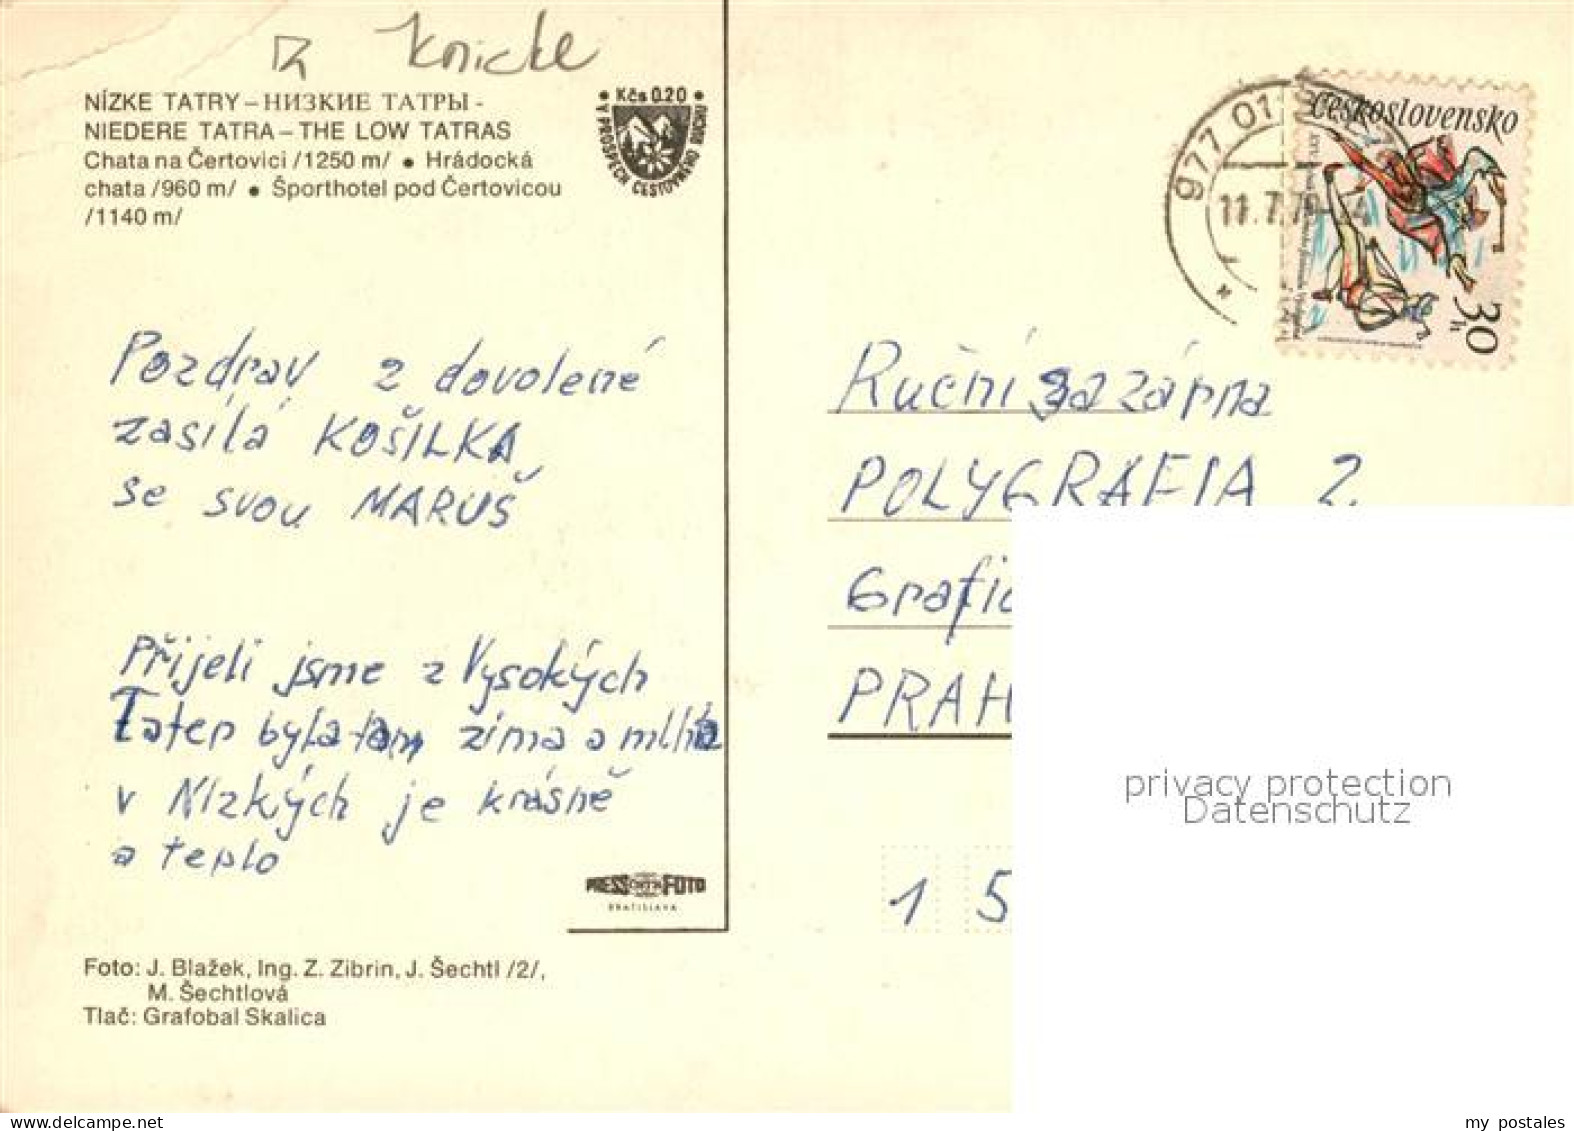 Knicke
NÍZKE TATRY – НИЗКИЕ ТАТРЫ -
NIEDERE TATRA – THE LOW TATRAS
Chata na Čertovici /1250 m/ ● Hrádocká
chata /960 m/ ● Športhotel pod Čertovicou
/1140 m/
• Kčs 0.20 •
V PROSPECH CESTOVNÉHO RUCHU
977 01
11.7.79-14
Československo
30 h
Pozdrav z dovolené
zasílá KOŠILKA
se svou MARUŠ
Přijeli jsme z Vysokých
Tater byla tam zima a mlha
v Nízkých je krásně
a teplo
Ruční sazárna
POLYGRAFIA 2.
Grafic
PRAH
privacy protection
Datenschutz
1 5
PRESSFOTO
BRATISLAVA
Foto: J. Blažek, Ing. Z. Zibrin, J. Šechtl /2/,
M. Šechtlová
Tlač: Grafobal Skalica
www.delcampe.net
my postales